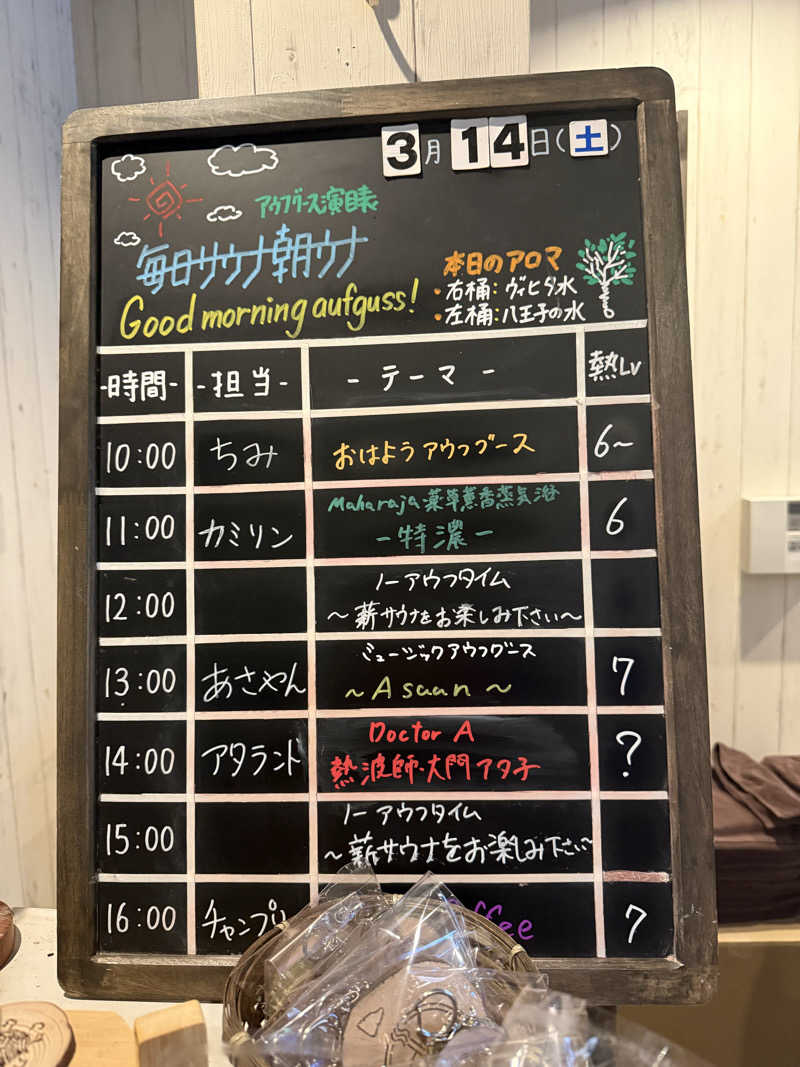 3月14日(土)
アウフグース演目表
毎日サウナ朝ウナ
Good morning aufguss!
本日のアロマ
・右桶:ヴィヒタ水
・左桶:八王子の水
-時間- -担当- -テーマ- 熱Lv
10:00 ちみ おはようアウフグース 6~
11:00 カミリン Maharaja薬草薫香蒸気浴
-特濃- 6
12:00 ノーアウフタイム
~薪サウナをお楽しみ下さい~
13:00 あさやん ミュージックアウフグース
~Asaan~ 7
14:00 アタランド Doctor A
熱波師・大門アタ子 ?
15:00 ノーアウフタイム
~薪サウナをお楽しみ下さい~
16:00 チャンプル 7